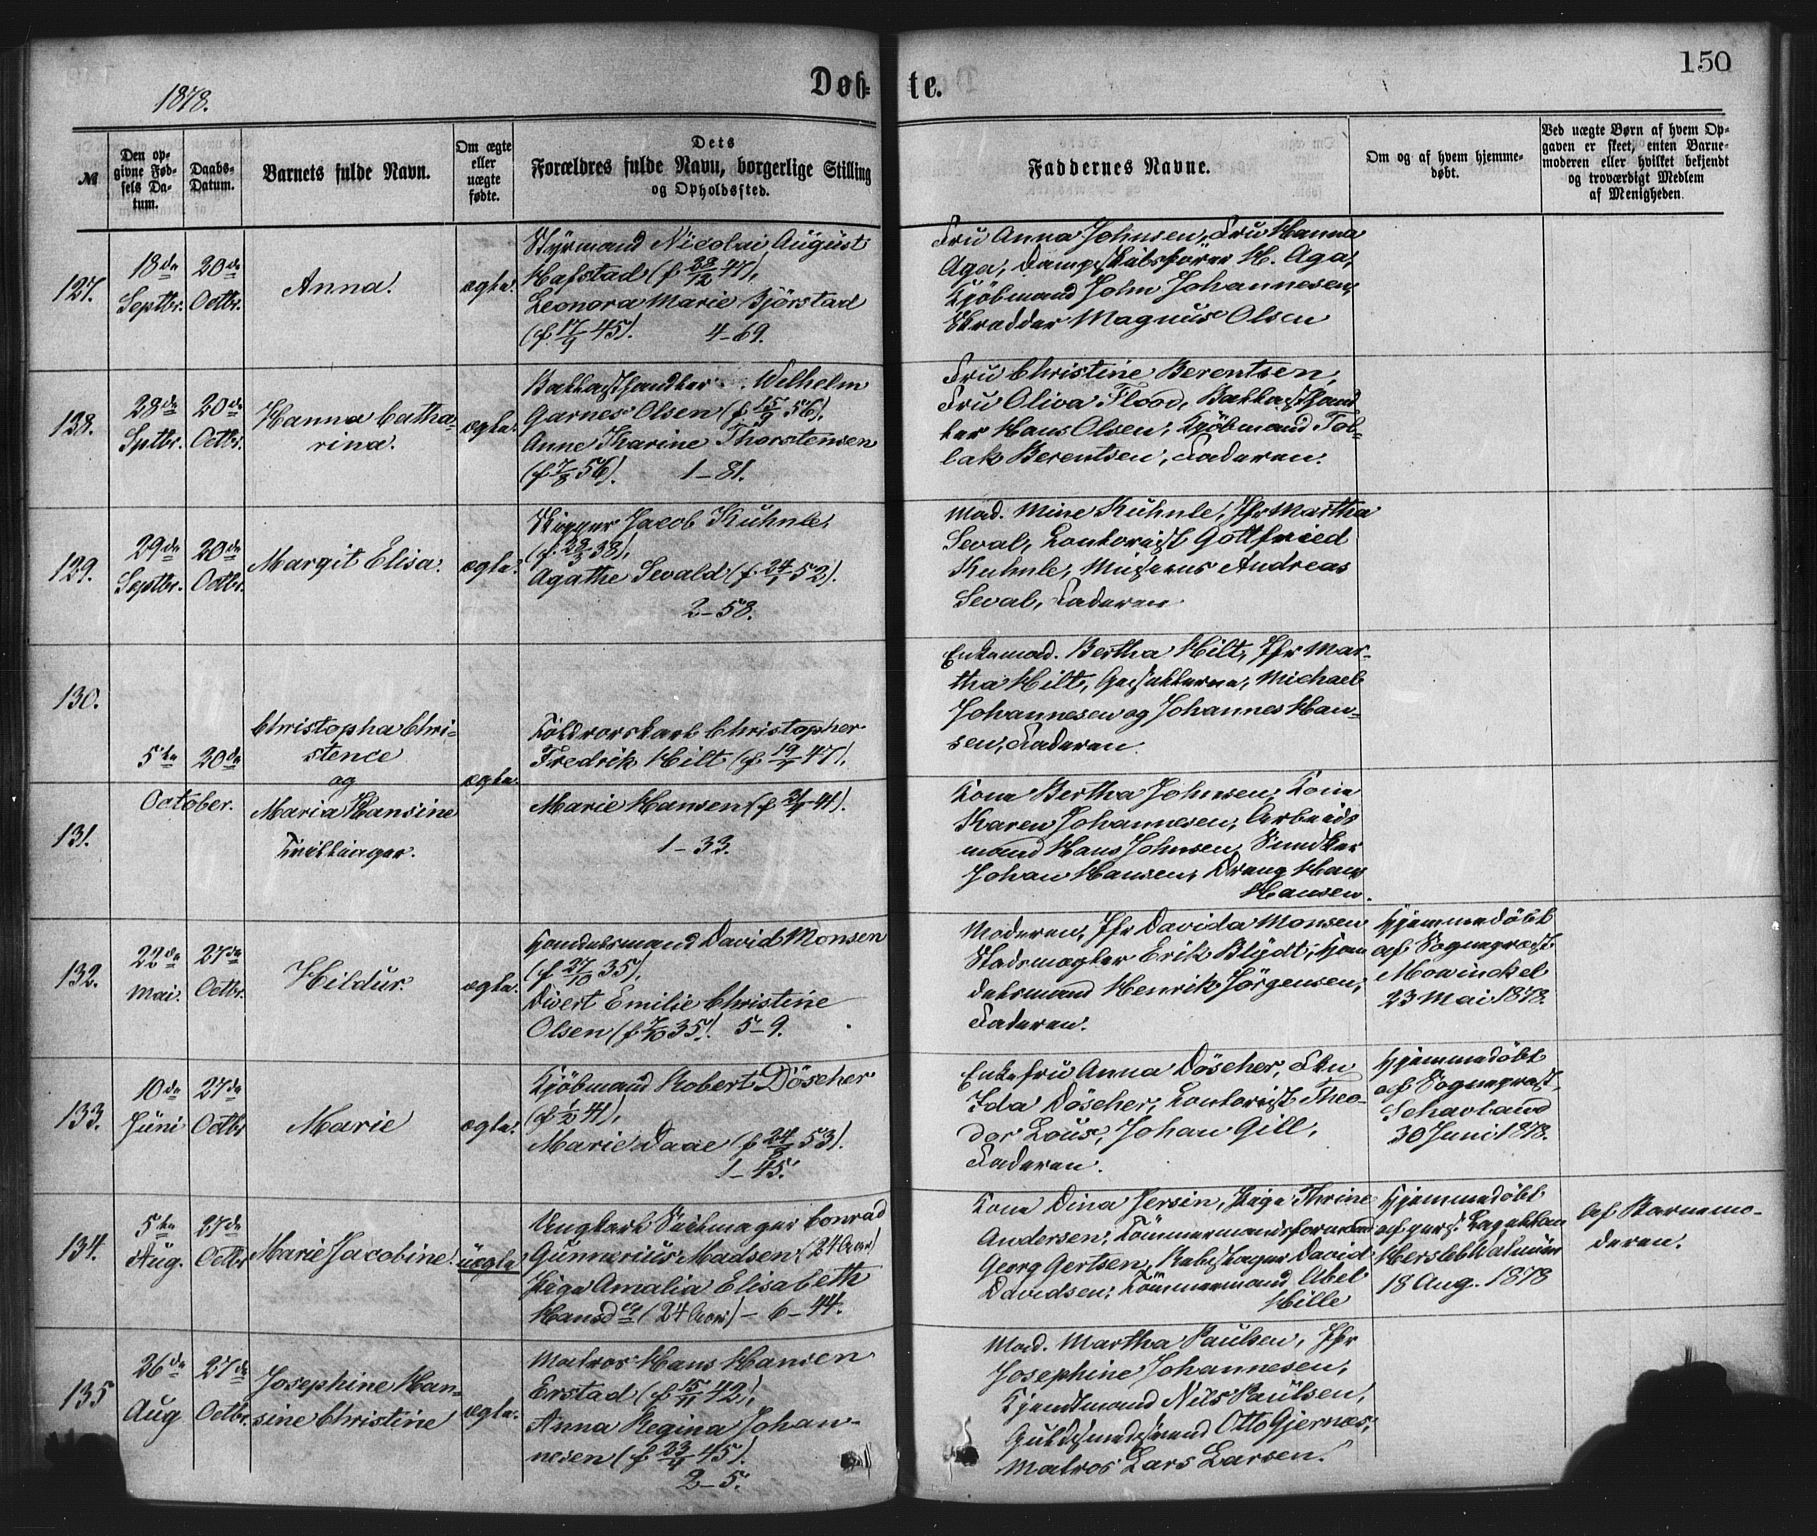 150
1878.
Døb- te.
№
Den op-
givne Fød-
sels Da-
tum.
Daabs-
Datum.
Barnets fulde Navn.
Om ægte
eller
uægte
fødte.
Dets
Forældres fulde Navn, borgerlige Stilling
og Opholdssted.
Faddernes Navne.
Om og af hvem hjemme-
døbt.
Ved uægte Børn af hvem Op-
gaven er skeet, enten Barne-
moderen eller hvilket bekjendt
og troværdigt Medlem
af Menigheden.
127.
18de
Septbr.
20de
Octbr.
Anna.
ægte.
Styrmand Nicolai August
Hafstad (f. 23/12 47),
Leonora Marie Björstad
(f. 17/9 45). 4-69.
Fru Anna Johnsen, Fru Hanna
Aga, Dampskibsfører H. Aga,
Kjöbmand John Johannesen,
Skrædder Magnus Olsen
128.
28de
Sptbr.
20de
Octbr.
Hanna Catha-
rina.
ægte.
Wilhelm
Garnes Olsen (f. 15/9 56),
Anne Karine Thorstensen
(f. 7/8 56). 1-81.
Fru Christine Berentsen,
Fru Oliva Flood,
Hans Olsen, Kjöbmand Tol-
lak Berentsen, Faderen.
129.
29de
Septbr.
20de
Octbr.
Margit Elisa.
ægte.
Jacob Kühnle,
(f. 28/3 38),
Agathe Sevald (f. 24/1 52).
2-58.
Mad. Mine Kühnle, Jfr Martha
Seval, Contorist Gottfried
Kuhnle, Andreas
Seval, Faderen
130.
5te
20de
Christopha Chri-
stence
og
ægte.
Christopher
Fredrik Hilt (f. 19/1 47),
Enkemad. Bertha Hilt, Jfr Mar-
tha Hilt, Gesællerne, Michael
Johannesen og Johannes Han-
sen, Faderen.
131.
October.
Maria Hansine
Tvillinger.
Marie Hansen (f. 21/1 41).
1-33.
Kone Bertha Johnsen, Kone
Karen Johannesen, Arbeids
mand Hans Johnsen, Snedker
Johan Hansen, Dreng Hans
Hansen.
132.
22de
Mai.
27de
Octbr.
Hildur
ægte.
Handelsmand David Monsen
(f. 27/10 35),
Divert Emilie Christine
Olsen (f. 7/10 35). 5-9.
Moderen, Jfr Davida Monsen
Stadsmægler Erik Blydt, Han
delsmand Henrik Jörgensen,
Faderen.
Hjemmedöbt
af Sognepræst
Mowinckel
23 Mai 1878.
133.
10de
Juni
27de
Octbr
Marie
ægte.
Kjöbmand Robert Döscher
(f. 1/2 41),
Marie Daae (f. 24/8 53).
1-45.
Enkefru Anna Döscher, Frk
Ida Döscher, Contorist Theo-
dor Lous, Johan Gill,
Faderen.
Hjemmedöbt
af Sognepræst
Schavland
30 Juni 1878.
134.
5te
Aug.
27de
Octbr
Marie Jacobine.
uægte
Ungkarl Seilmager Conrad
Gunnerius Madsen (24 Aar)
Pige Amalia Elisabeth
Hansdtr (24 Aar) - 6-44.
Kone Dina Jersin, Pige Thrine
Andersen, Tömmermandsformand
Georg Gertsen, Rebslager David
Davidsen, Tömmermand Abel
Hille
Hjemmedöbt
af pers. Capellan
Hersleb Walnum
18 Aug. 1878
Af Barnemo-
deren.
135
26de
Aug
27de
Octbr.
Josephine Han-
sine Christine
ægte.
Matros Hans Hansen
Erstad (f. 15/11 42),
Anna Regina Johan-
nesen (f. 23/4 45).
2-5.
Mad. Martha Paulsen, Jfr
Josephine Johannesen,
Nils Paulsen,
Guldsmedsvend Otto Gjernæs,
Matros Lars Larsen.